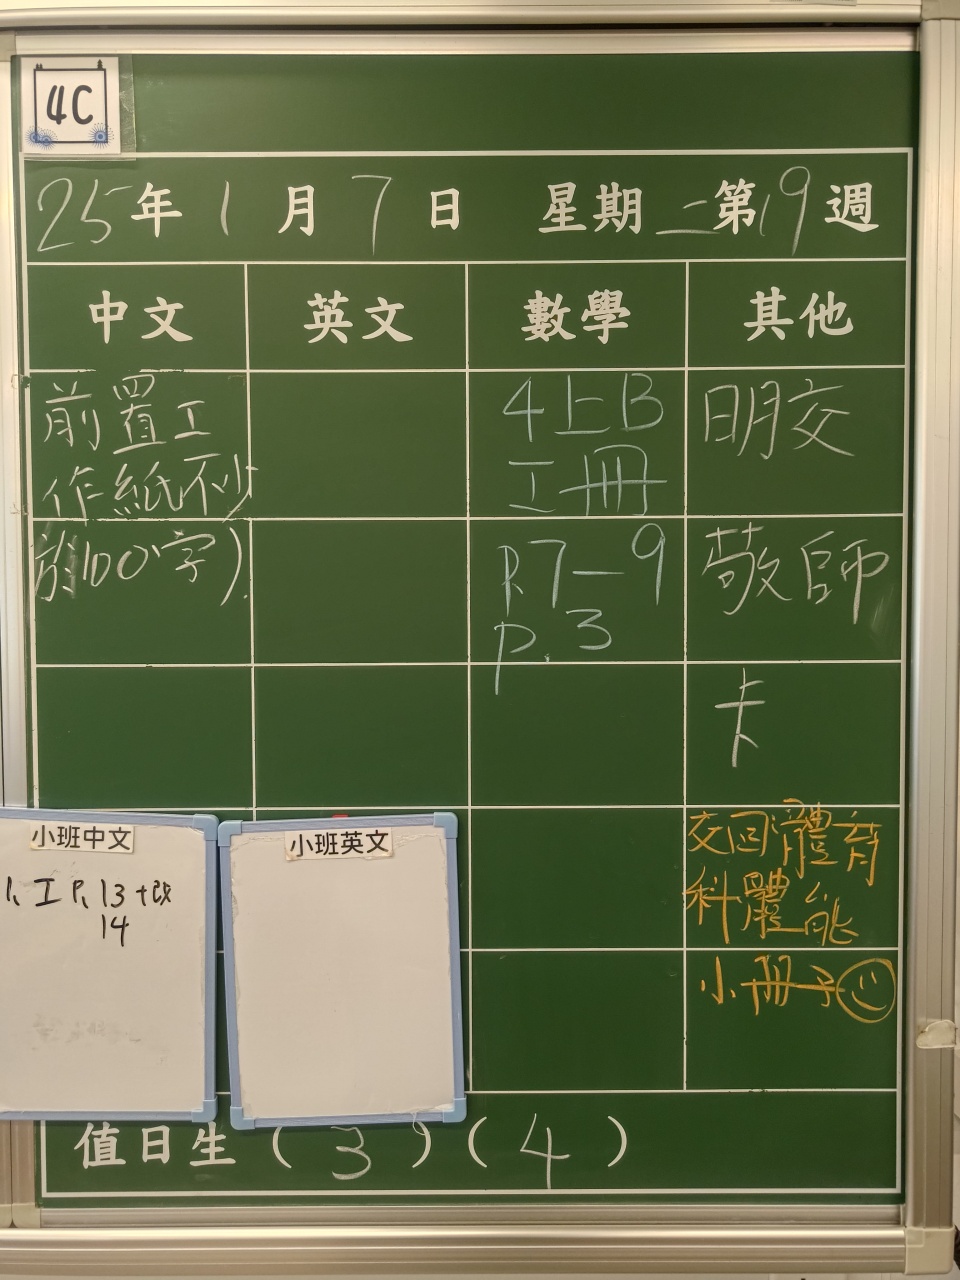 4C
25年1月7日 星期二第19週
中文 英文 數學 其他
前置工
作紙不少
於100字).
4上B
工冊
P.7-9
p.3
明交
敬師
卡
交回體育
科體能
小冊子
小班中文
1、工P、13+改
14
小班英文
值日生 (3) (4)